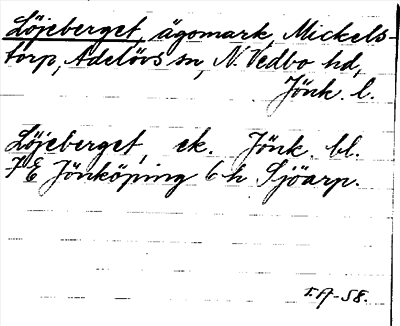 Löjeberget, ägomark, Mickels-
torp, Adelövs sn, N. Vedbo hd,
Jönk. l.
Löjeberget, ek. Jönk. bl.
7 E Jönköping 6 h Sjöarp.
I. A-58.